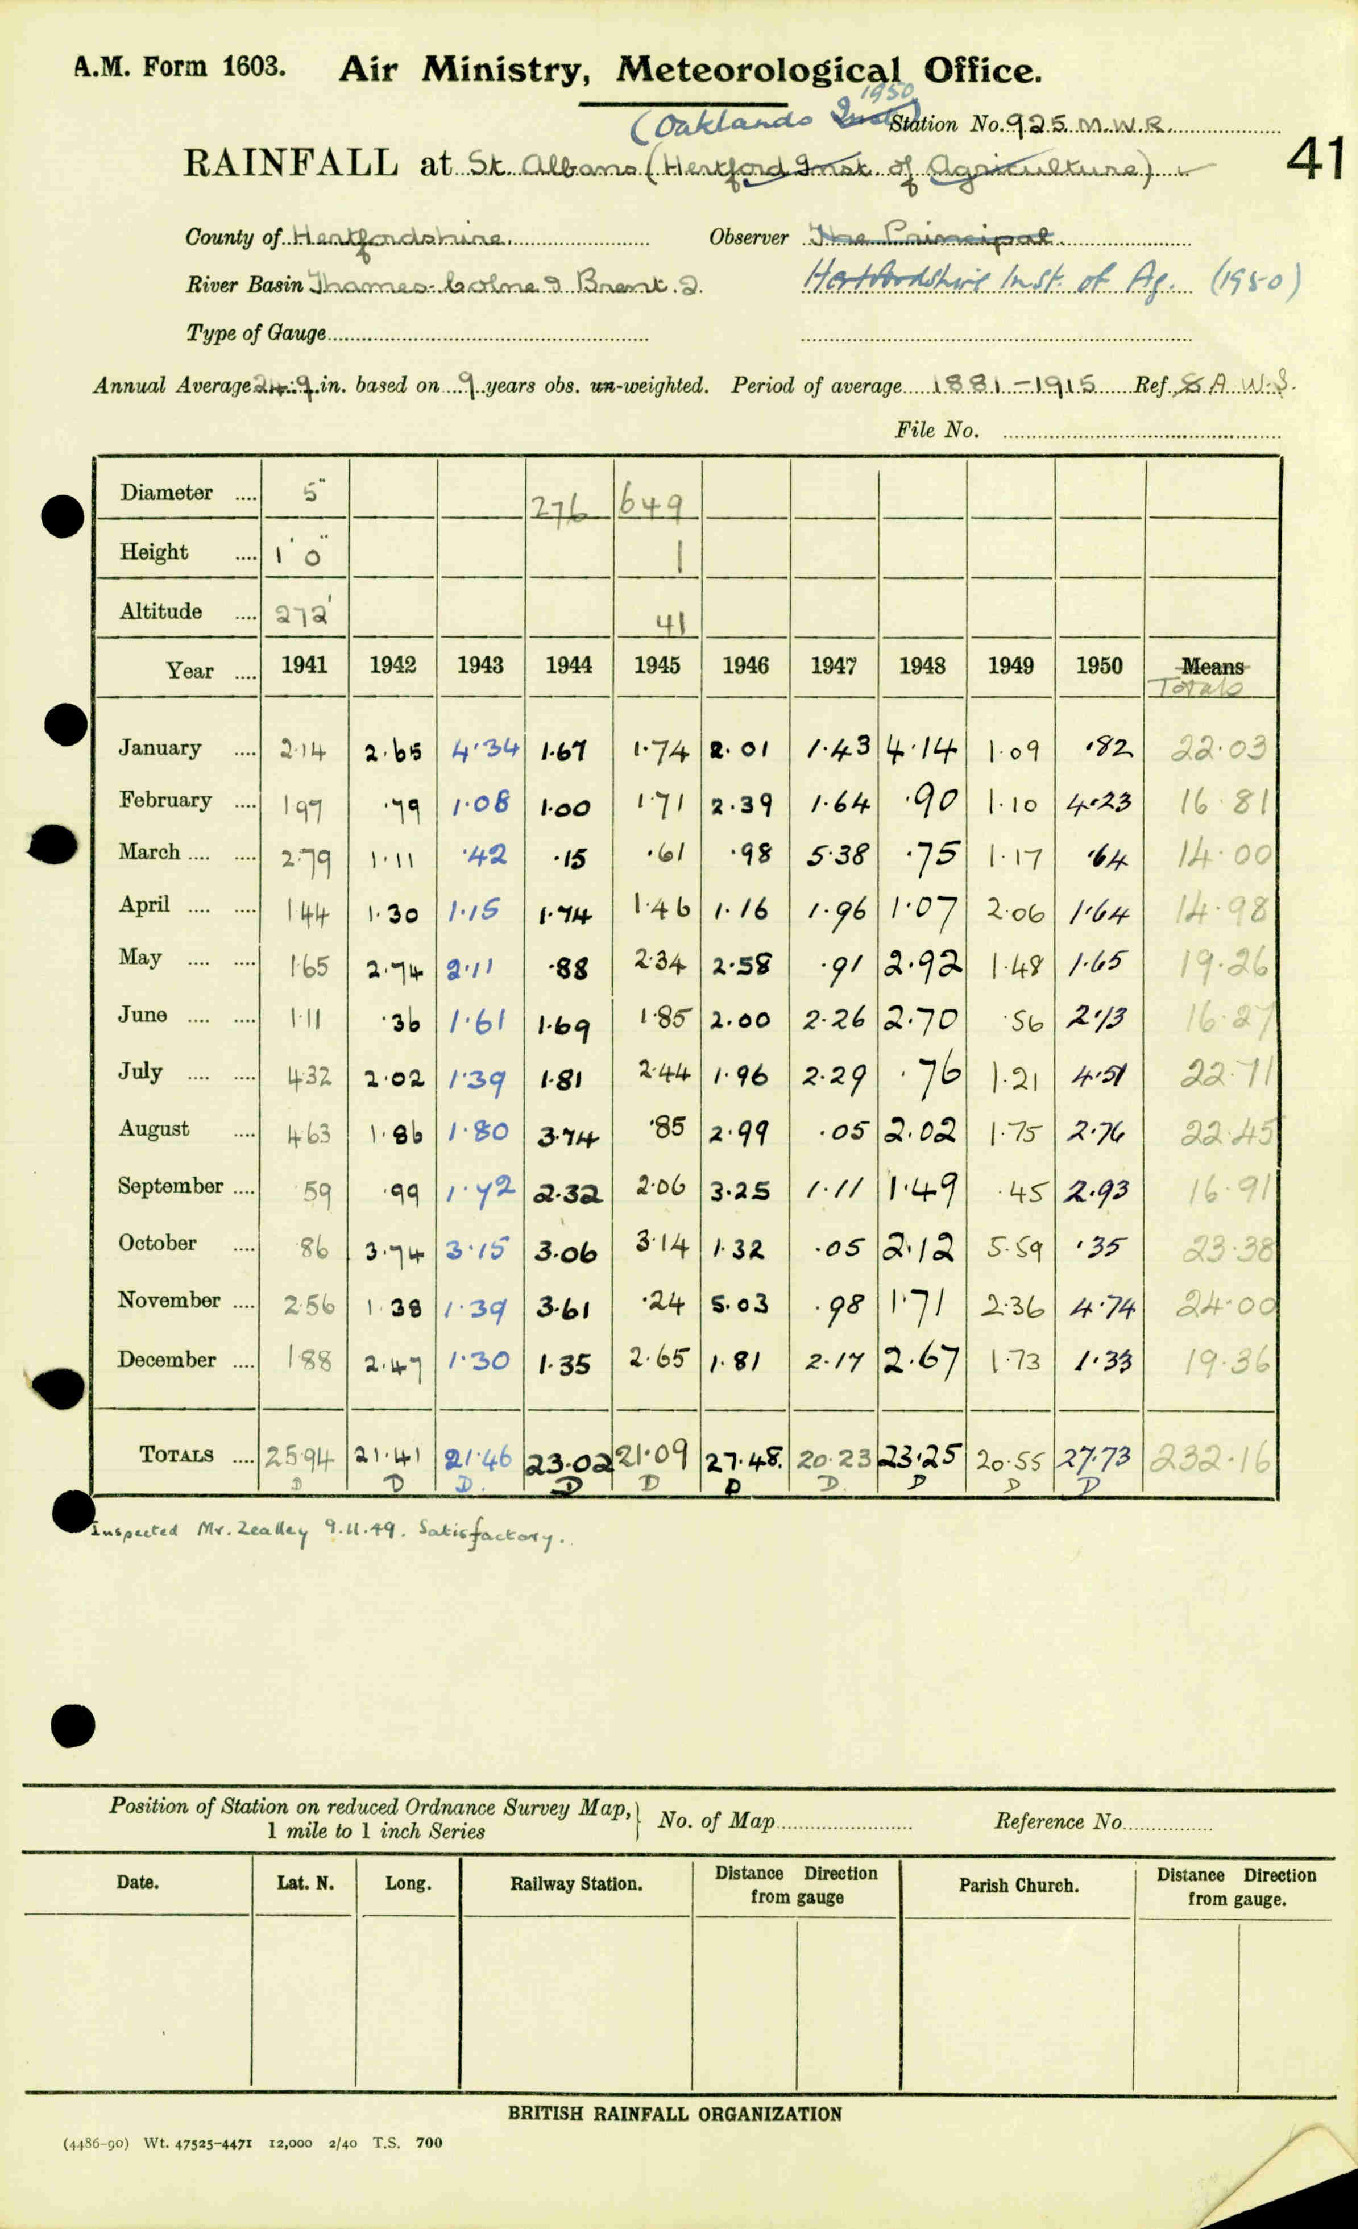 A.M. Form 1603. Air Ministry, Meteorological Office.
1950
(Oaklands Inst.) Station No. 925 M.W.R.
RAINFALL at St. Albans (Hertford Inst. of Agriculture) ✓ 41
County of Hertfordshire. Observer The Principal
River Basin Thames-Colne & Brent. 2. Hertfordshire Inst. of Ag. (1950)
Type of Gauge
Annual Average 24.9 in. based on 9 years obs. un-weighted. Period of average 1881-1915 Ref. & A W.S.
File No.
Diameter .... 5" 276 649
Height .... 1' 0" 1
Altitude .... 272' 41
Year .... 1941 1942 1943 1944 1945 1946 1947 1948 1949 1950 Means
Totals
January .... 2.14 2.65 4.34 1.67 1.74 2.01 1.43 4.14 1.09 .82 22.03
February .... 197 .79 1.08 1.00 1.71 2.39 1.64 .90 1.10 4.23 16 81
March .... .... 2.79 1.11 .42 .15 .61 .98 5.38 .75 1.17 .64 14.00
April .... .... 144 1.30 1.15 1.74 1.46 1.16 1.96 1.07 2.06 1.64 14.98
May .... .... 1.65 2.74 2.11 .88 2.34 2.58 .91 2.92 1.48 1.65 19.26
June .... .... 1.11 .36 1.61 1.69 1.85 2.00 2.26 2.70 .56 2.13 16.27
July .... .... 4.32 2.02 1.39 1.81 2.44 1.96 2.29 .76 1.21 4.51 22.71
August .... 4.63 1.86 1.80 3.74 .85 2.99 .05 2.02 1.75 2.76 22.45
September .... 59 .99 1.72 2.32 2.06 3.25 1.11 1.49 .45 2.93 16.91
October .... 86 3.74 3.15 3.06 3.14 1.32 .05 2.12 5.59 .35 23.38
November .... 2.56 1.38 1.39 3.61 .24 5.03 .98 1.71 2.36 4.74 24.00
December .... 188 2.47 1.30 1.35 2.65 1.81 2.17 2.67 1.73 1.33 19.36
TOTALS .... 25.94 21.41 21.46 23.02 21.09 27.48. 20.23 23.25 20.55 27.73 232.16
D D D. D D D D. D D D
Inspected Mr. Zealley 9.11.49. Satisfactory.
Position of Station on reduced Ordnance Survey Map,} No. of Map Reference No.
1 mile to 1 inch Series
Date. Lat. N. Long. Railway Station. Distance Direction from gauge Parish Church. Distance Direction from gauge.
BRITISH RAINFALL ORGANIZATION
(4486-90) Wt. 47525-4471 12,000 2/40 T.S. 700